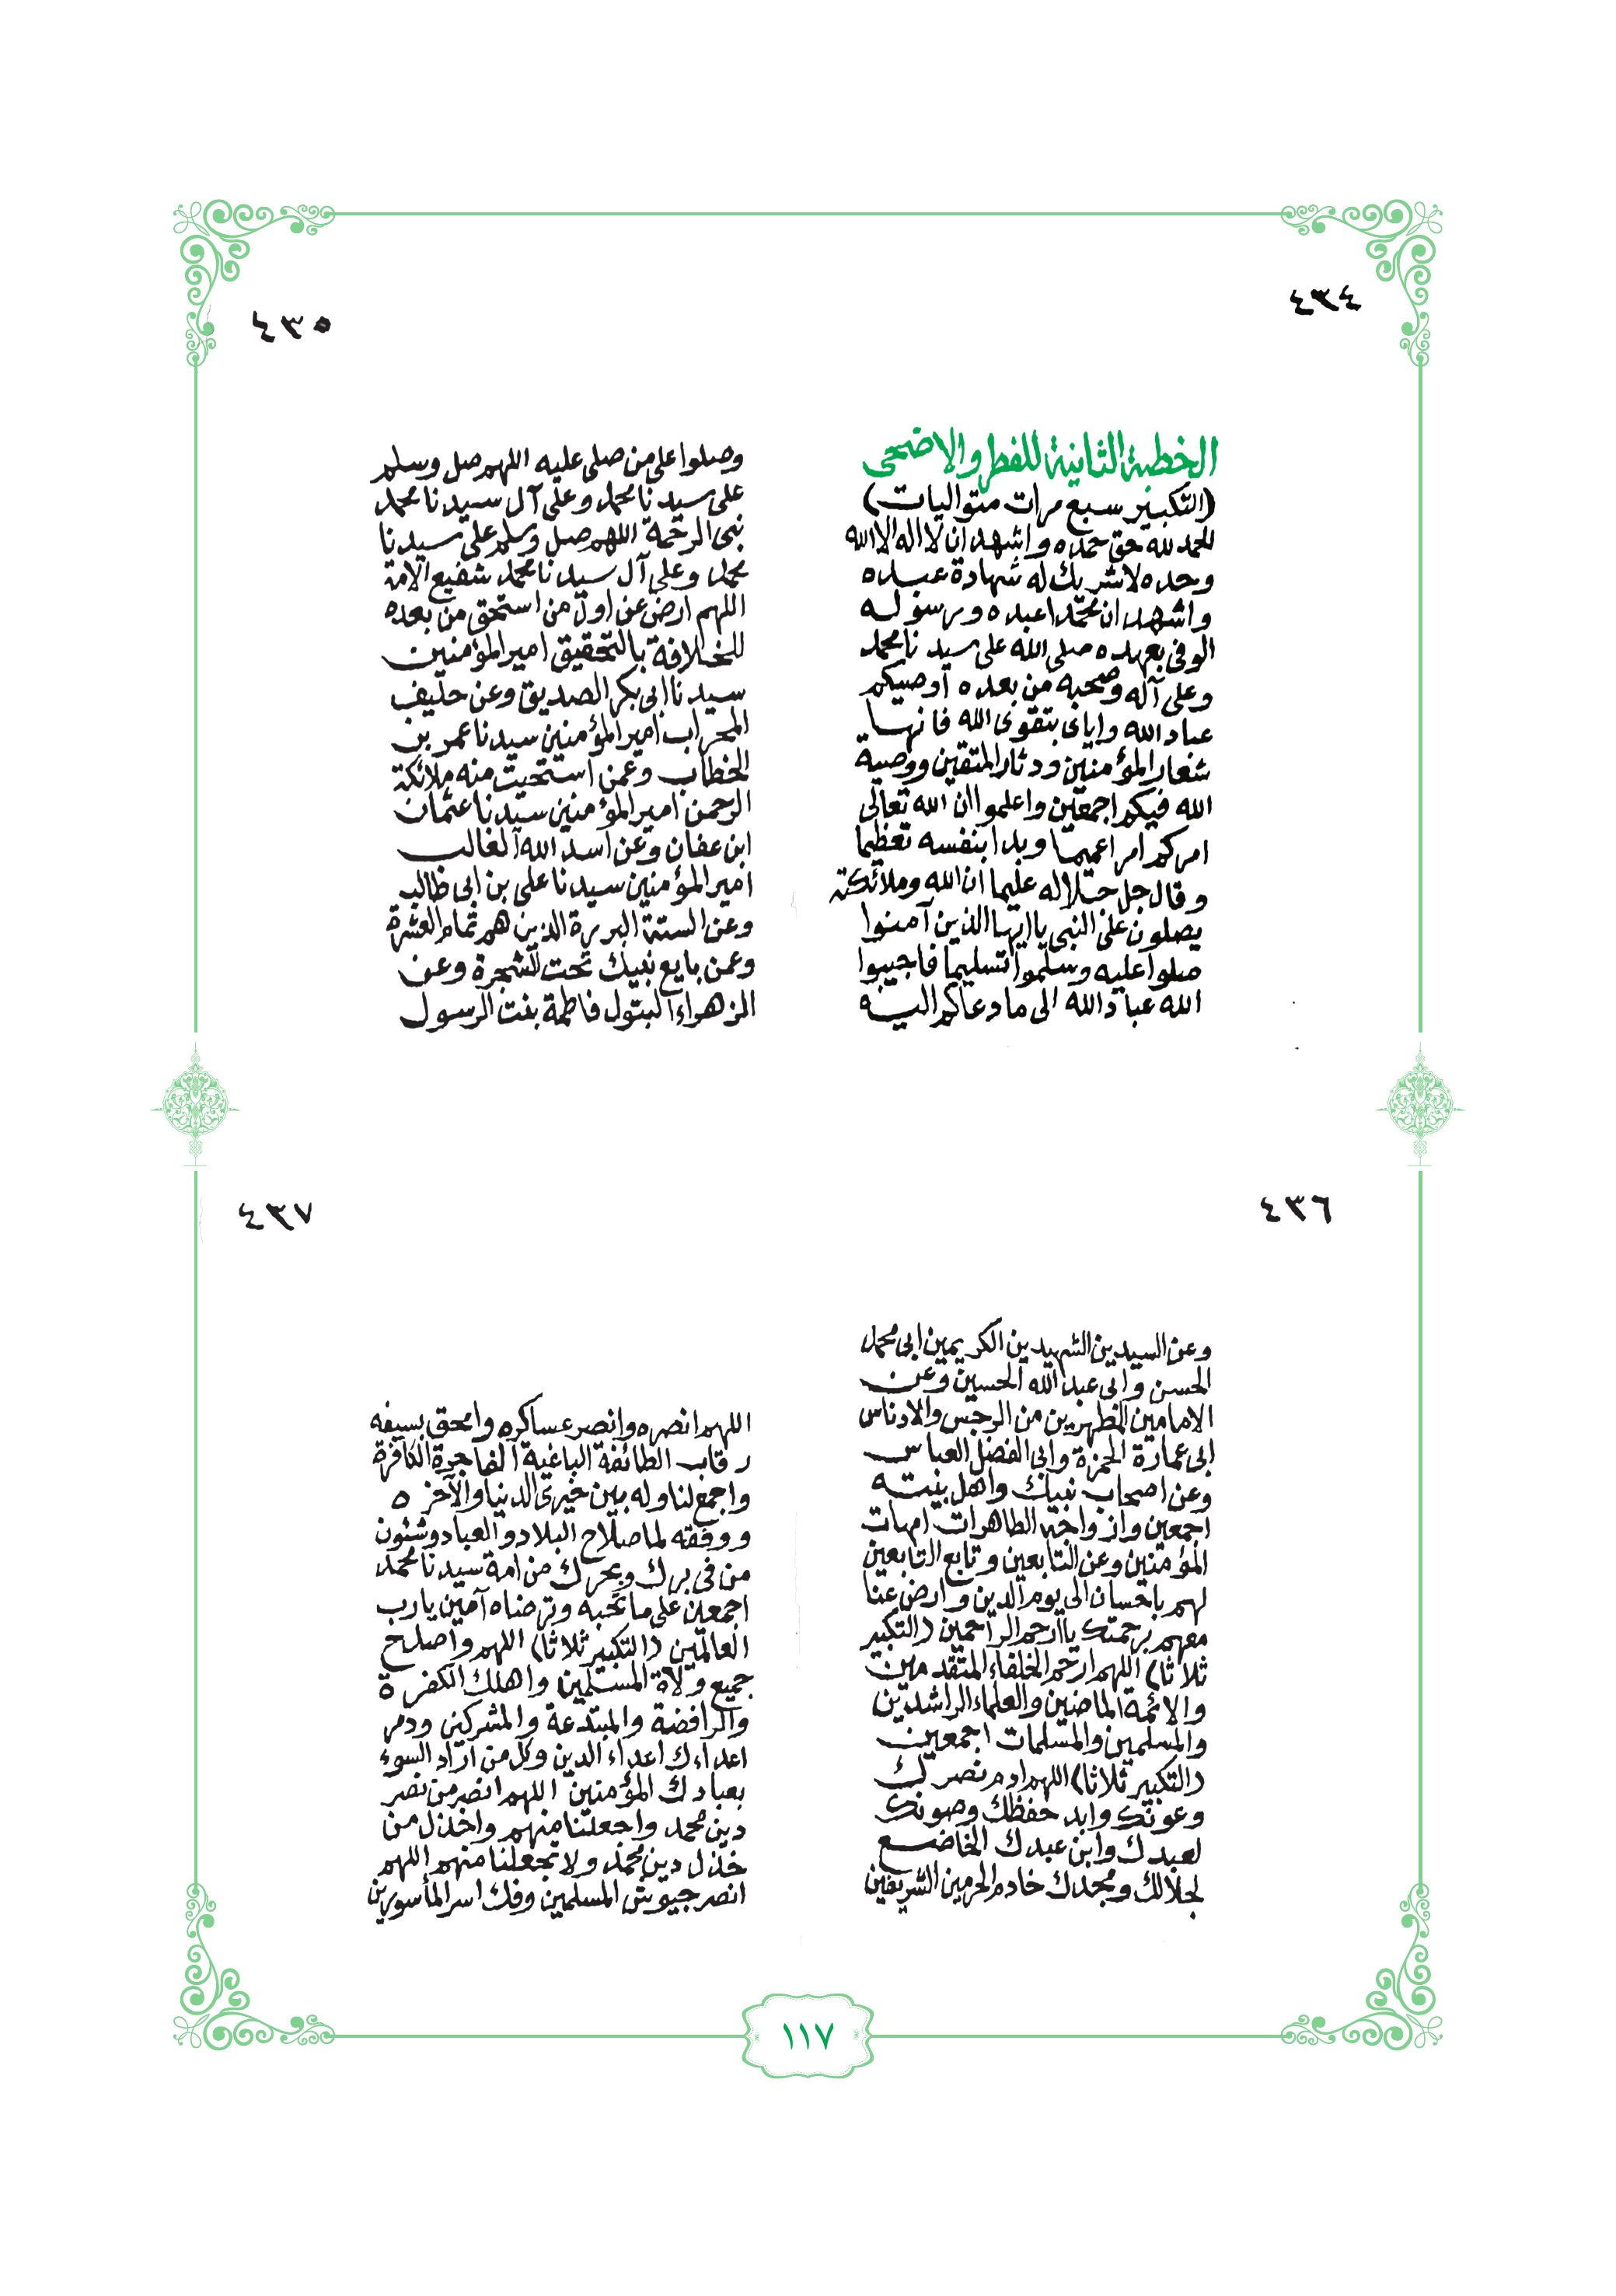 ٤٣٤
الخطبة الثانية للفطر والاضحى
(التكبير سبع مرات متواليات)
الحمد لله حق حمده واشهد ان لا اله الا الله
وحده لا شريك له شهادة عبده
واشهد ان محمدا عبده ورسوله
الوفي بعهده صلى الله على سيدنا محمد
وعلى آله وصحبه من بعده أوصيكم
عباد الله واياى بتقوى الله فانها
شعار المؤمنين ودثار المتقين ووصية
الله فيكم اجمعين واعلموا ان الله تعالى
امركم امرا عميما وبدا بنفسه تعظيما
وقال جل جلاله عليما ان الله وملائكته
يصلون على النبي يا ايها الذين آمنوا
صلوا عليه وسلموا تسليما فاجيبوا
الله عباد الله الى ما دعاكم اليه
٤٣٥
وصلوا على من صلى عليه اللهم صل وسلم
على سيدنا محمد وعلى آل سيدنا محمد
نبى الرحمة اللهم صل وسلم على سيدنا
محمد وعلى آل سيدنا محمد شفيع الامة
اللهم ارض عن اول من استحق من بعده
للخلافة بالتحقيق امير المؤمنين
سيدنا ابى بكر الصديق وعن حليف
المحراب امير المؤمنين سيدنا عمر بن
الخطاب وعمن استحيت منه ملائكة
الرحمن امير المؤمنين سيدنا عثمان
ابن عفان وعن اسد الله الغالب
امير المؤمنين سيدنا على بن ابى طالب
وعن الستة البررة الذين هم تمام العشرة
وعمن بايع نبيك تحت الشجرة وعن
الزهراء البتول فاطمة بنت الرسول
٤٣٦
وعن السيدين الشهيدين الكريمين ابى محمد
الحسن وابى عبد الله الحسين وعن
الامامين المطهرين من الرجس والادناس
ابى عمارة الحمزة وابى الفضل العباس
وعن اصحاب نبيك واهل بيته
اجمعين وازواجه الطاهرات امهات
المؤمنين وعن التابعين وتابع التابعين
لهم باحسان الى يوم الدين وارض عنا
معهم برحمتك يا ارحم الراحمين (التكبير
ثلاثا) اللهم ارحم الخلفاء المتقدمين
والائمة الماضين والعلماء الراشدين
والمسلمين والمسلمات اجمعين
(التكبير ثلاثا) اللهم ادم نصرك
وعونك وابد حفظك وصونك
لعبدك وابن عبدك الخاضع
لجلالك ومجدك خادم الحرمين الشريفين
٤٣٧
اللهم انصره وانصر عساكره وامحق بسيفه
رقاب الطائفة الباغية الفاجرة الكافرة
واجمع لنا وله بين خيرى الدنيا والآخرة
ووفقه لما صلاح البلاد والعباد وشئون
من فى برك وبحرك من امة سيدنا محمد
اجمعين على ما تحبه وترضاه آمين يارب
العالمين (التكبير ثلاثا) اللهم واصلح
جميع ولاة المسلمين واهلك الكفرة
والرافضة والمبتدعة والمشركين ودمر
اعداءك اعداء الدين وكل من اراد السوء
بعبادك المؤمنين اللهم انصر من نصر
دين محمد واجعلنا منهم واخذل من
خذل دين محمد ولا تجعلنا منهم اللهم
انصر جيوش المسلمين وفك اسر المأسورين
١١٧